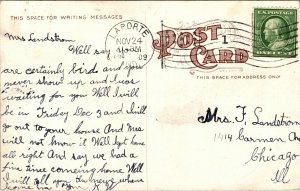 THIS SPACE FOR WRITING MESSAGES
Mrs Lindstrom
Well say you
are certainly birds and you
never show up and I was
waiting for you Well I will
be in Friday Dec 3 and will
go out to your house and
will not know it Well got home
all right And say we had a
fine time coming home Well
I will tell you the news when
home
LAPORTE
NOV 24
POST
CARD
THIS SPACE FOR ADDRESS ONLY
Mrs. F. Lundstrom
1414 Carmen Ave
Chicago
Ill